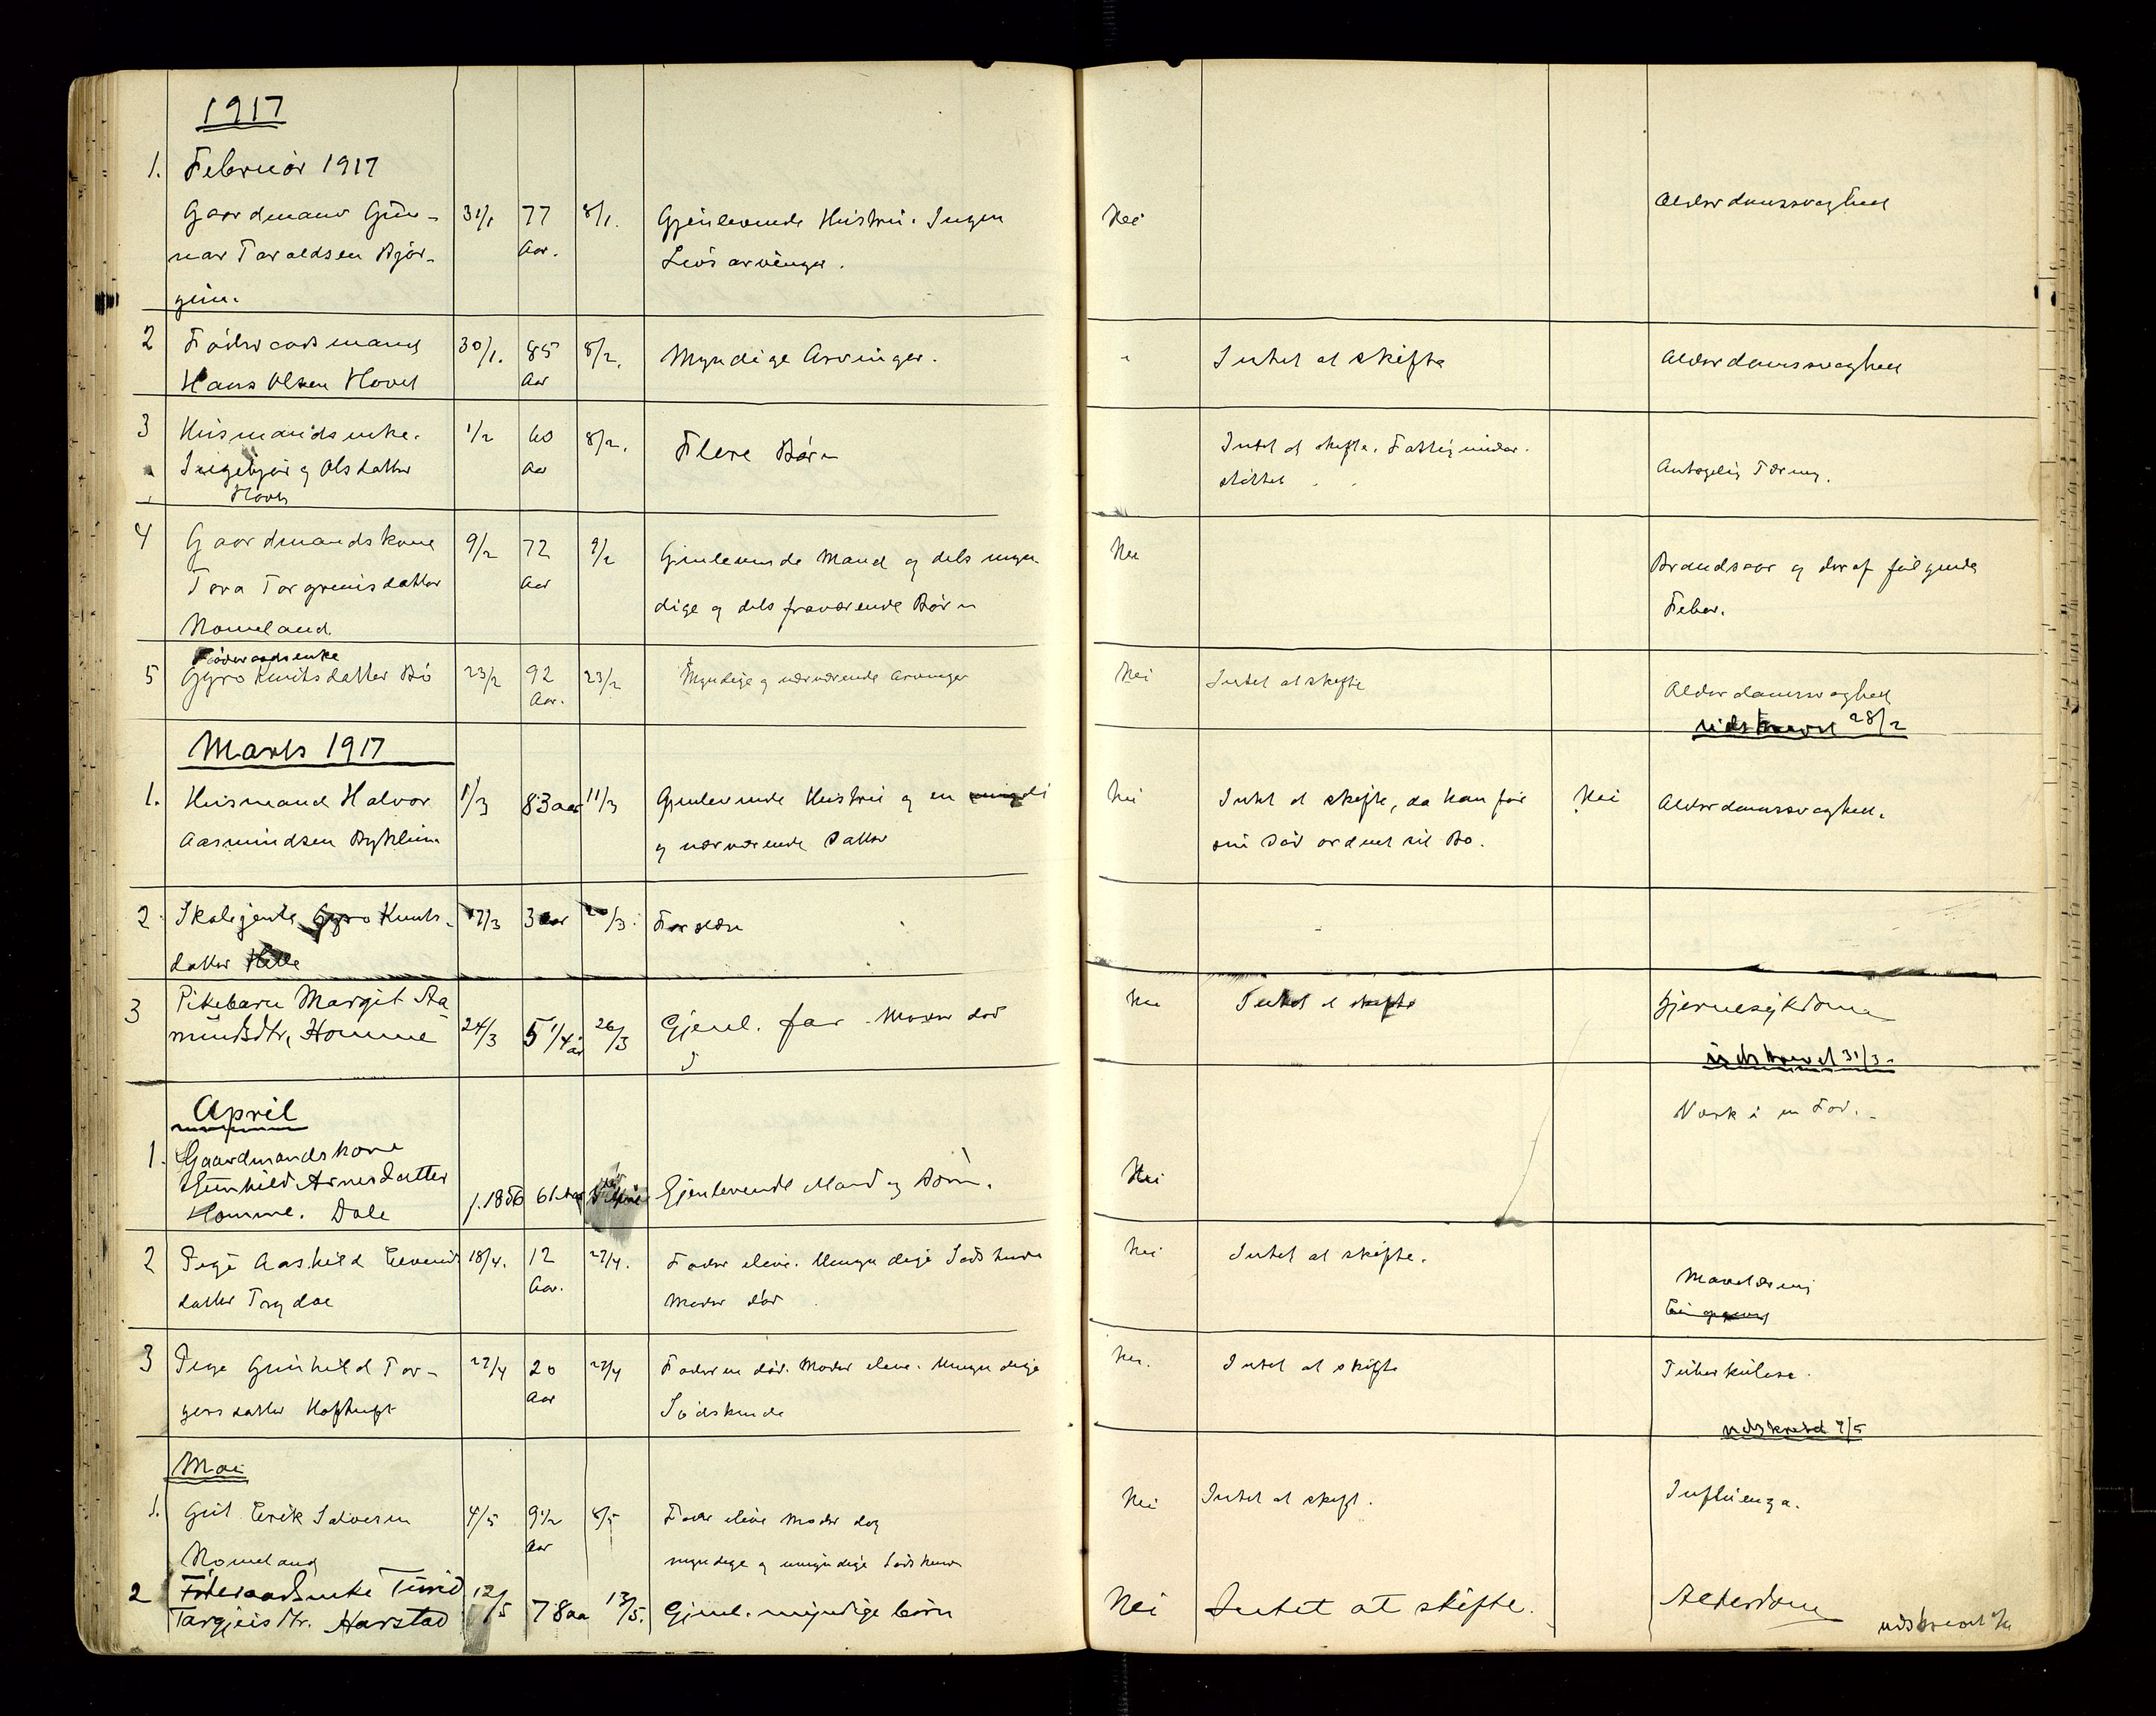 1917
1. Februar 1917
Gaardmand Gun- 31/1 77 8/1. Gjenlevende Hustru. Ingen Nei Alderdomssvaghed
nar Taraldsen Bjør- Aar. Livsarvinger.
gum.
2 Føderaadsmand 30/1. 85 8/2. Myndige Arvinger. " Intet at skifte Alderdomssvaghed
Hans Olsen Hovet Aar
3 Husmandsenke. 1/2 60 8/2. Flere Børn Intet at skifte. Fattigunder-
Ingebjørg Olsdatter Aar støttet Antagelig Tæring.
Hovet
4 Gaardmandskone 9/2 72 9/2 Gjenlevende Mand og dels myn Nei Brandsaar og deraf følgende
Tora Torgrimsdatter Aar dige og dels fraværende Børn Feber.
Nomeland
Føderaadsenke
5 Gyro Knutsdatter Bø 23/2 92 23/2 Myndige og nærværende Arvinger Nei Intet at skifte Alderdomssvaghed
Aar. udskrevet 28/2
Marts 1917
1. Husmand Halvor 1/3 83 aar 11/3 Gjenlevende Hustru og en Nei Intet at skifte, da han før Nei Alderdomssvaghed.
Aasmundsen og nærværende Datter sin Død ordnet sit Bo.
2. Skolejente Gyro Knuts- 17/3 20/3. Forældre
datter
3 Pikebarn Margit Aa 24/3 5 1/4 år 26/3 Gjenl. far. Moder død Nei Intet at skifte Hjernesykdom
mundsdtr, Homme
udskrevet 31/3
April
Værk i en Fod.
1. Gaardmandskone
Gunhild Arnesdatter f. 1856 61 Aar Gjenlevende Mand og Børn. Nei
Homme. Dale
2 Pige Aashild Eivends 18/4. 12 27/4. Fader ilive. Umyndige Sødskende Nei Intet at skifte.
datter Trydal Aar. Moder død Mavetæring
3 Pige Gunhild Tor- 27/4 20 27/4 Faderen død. Moder ilive. Umyndige Nei. Intet at skifte Tuberkulose.
gersdatter Aar Sødskende
udskrevet 7/5
Mai
1. Gut Erik Salvesen 4/5 9 1/2 8/5 Fader ilive Moder død Nei Intet at skifte. Influenza.
Nomeland Aar myndige og umyndige Sødskende
2 Føderaadsenke Turid 12/5 78 aa 13/5. Gjenl. myndige børn Nei Intet at skifte. Alderdom
Targjeisdtr. Harstad udskrevet